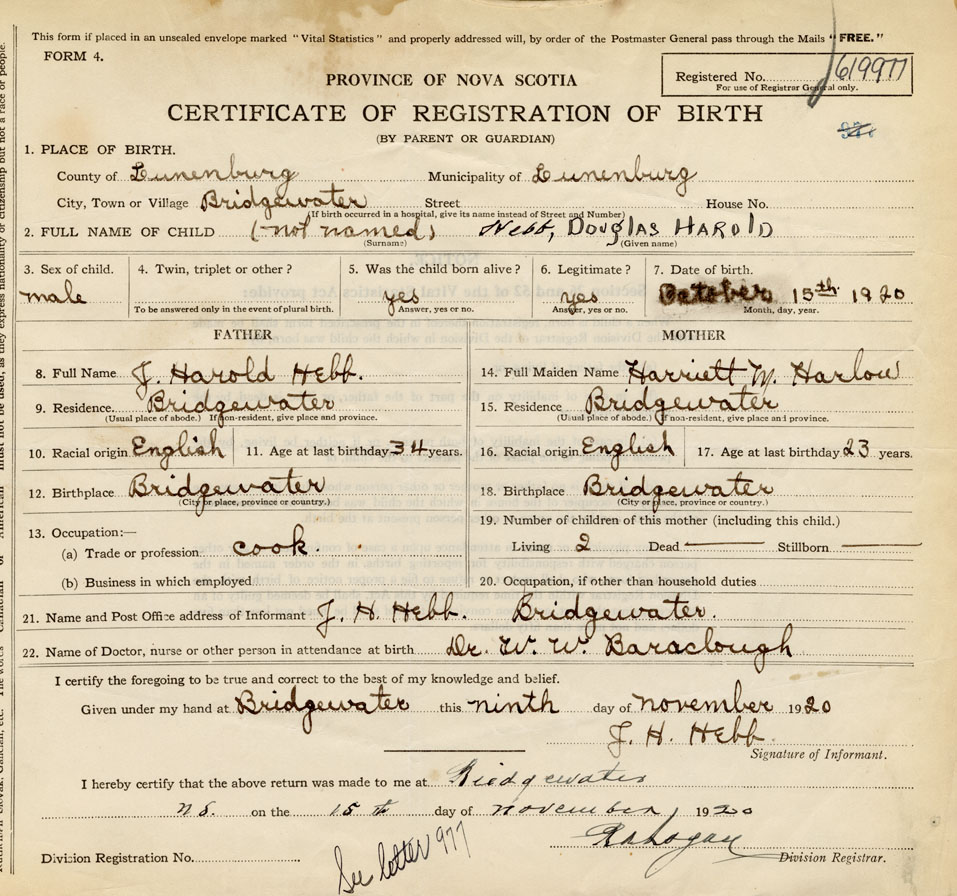 This form if placed in an unsealed envelope marked "Vital Statistics" and properly addressed will, by order of the Postmaster General pass through the Mails "FREE."
FORM 4.
Registered No. 619977
For use of Registrar General only.
PROVINCE OF NOVA SCOTIA
CERTIFICATE OF REGISTRATION OF BIRTH
(BY PARENT OR GUARDIAN)
1. PLACE OF BIRTH.
County of Lunenburg Municipality of Lunenburg
City, Town or Village Bridgewater Street House No.
(If birth occurred in a hospital, give its name instead of Street and Number)
2. FULL NAME OF CHILD (not named) Hebb, Douglas Harold
(Surname) (Given name)
3. Sex of child. 4. Twin, triplet or other? 5. Was the child born alive? 6. Legitimate? 7. Date of birth.
male yes yes October 15th 1920
To be answered only in the event of plural birth. Answer, yes or no. Answer, yes or no. Month, day, year.
FATHER MOTHER
8. Full Name J. Harold Hebb. 14. Full Maiden Name Harriett M. Harlow
9. Residence Bridgewater 15. Residence Bridgewater
(Usual place of abode.) If non-resident, give place and province. (Usual place of abode.) If non-resident, give place and province.
10. Racial origin English 11. Age at last birthday 34 years. 16. Racial origin English 17. Age at last birthday 23 years.
12. Birthplace Bridgewater 18. Birthplace Bridgewater
(City or place, province or country.) (City or place, province or country.)
13. Occupation:— 19. Number of children of this mother (including this child.)
(a) Trade or profession cook. Living 2 Dead — Stillborn —
(b) Business in which employed 20. Occupation, if other than household duties
21. Name and Post Office address of Informant J. H. Hebb. Bridgewater.
22. Name of Doctor, nurse or other person in attendance at birth Dr. W. W. Baraclough
I certify the foregoing to be true and correct to the best of my knowledge and belief.
Given under my hand at Bridgewater this ninth day of november 1920
J. H. Hebb.
Signature of Informant.
I hereby certify that the above return was made to me at Bridgewater
NS. on the 15th day of november 1920
Division Registration No. Division Registrar.
See letter 977